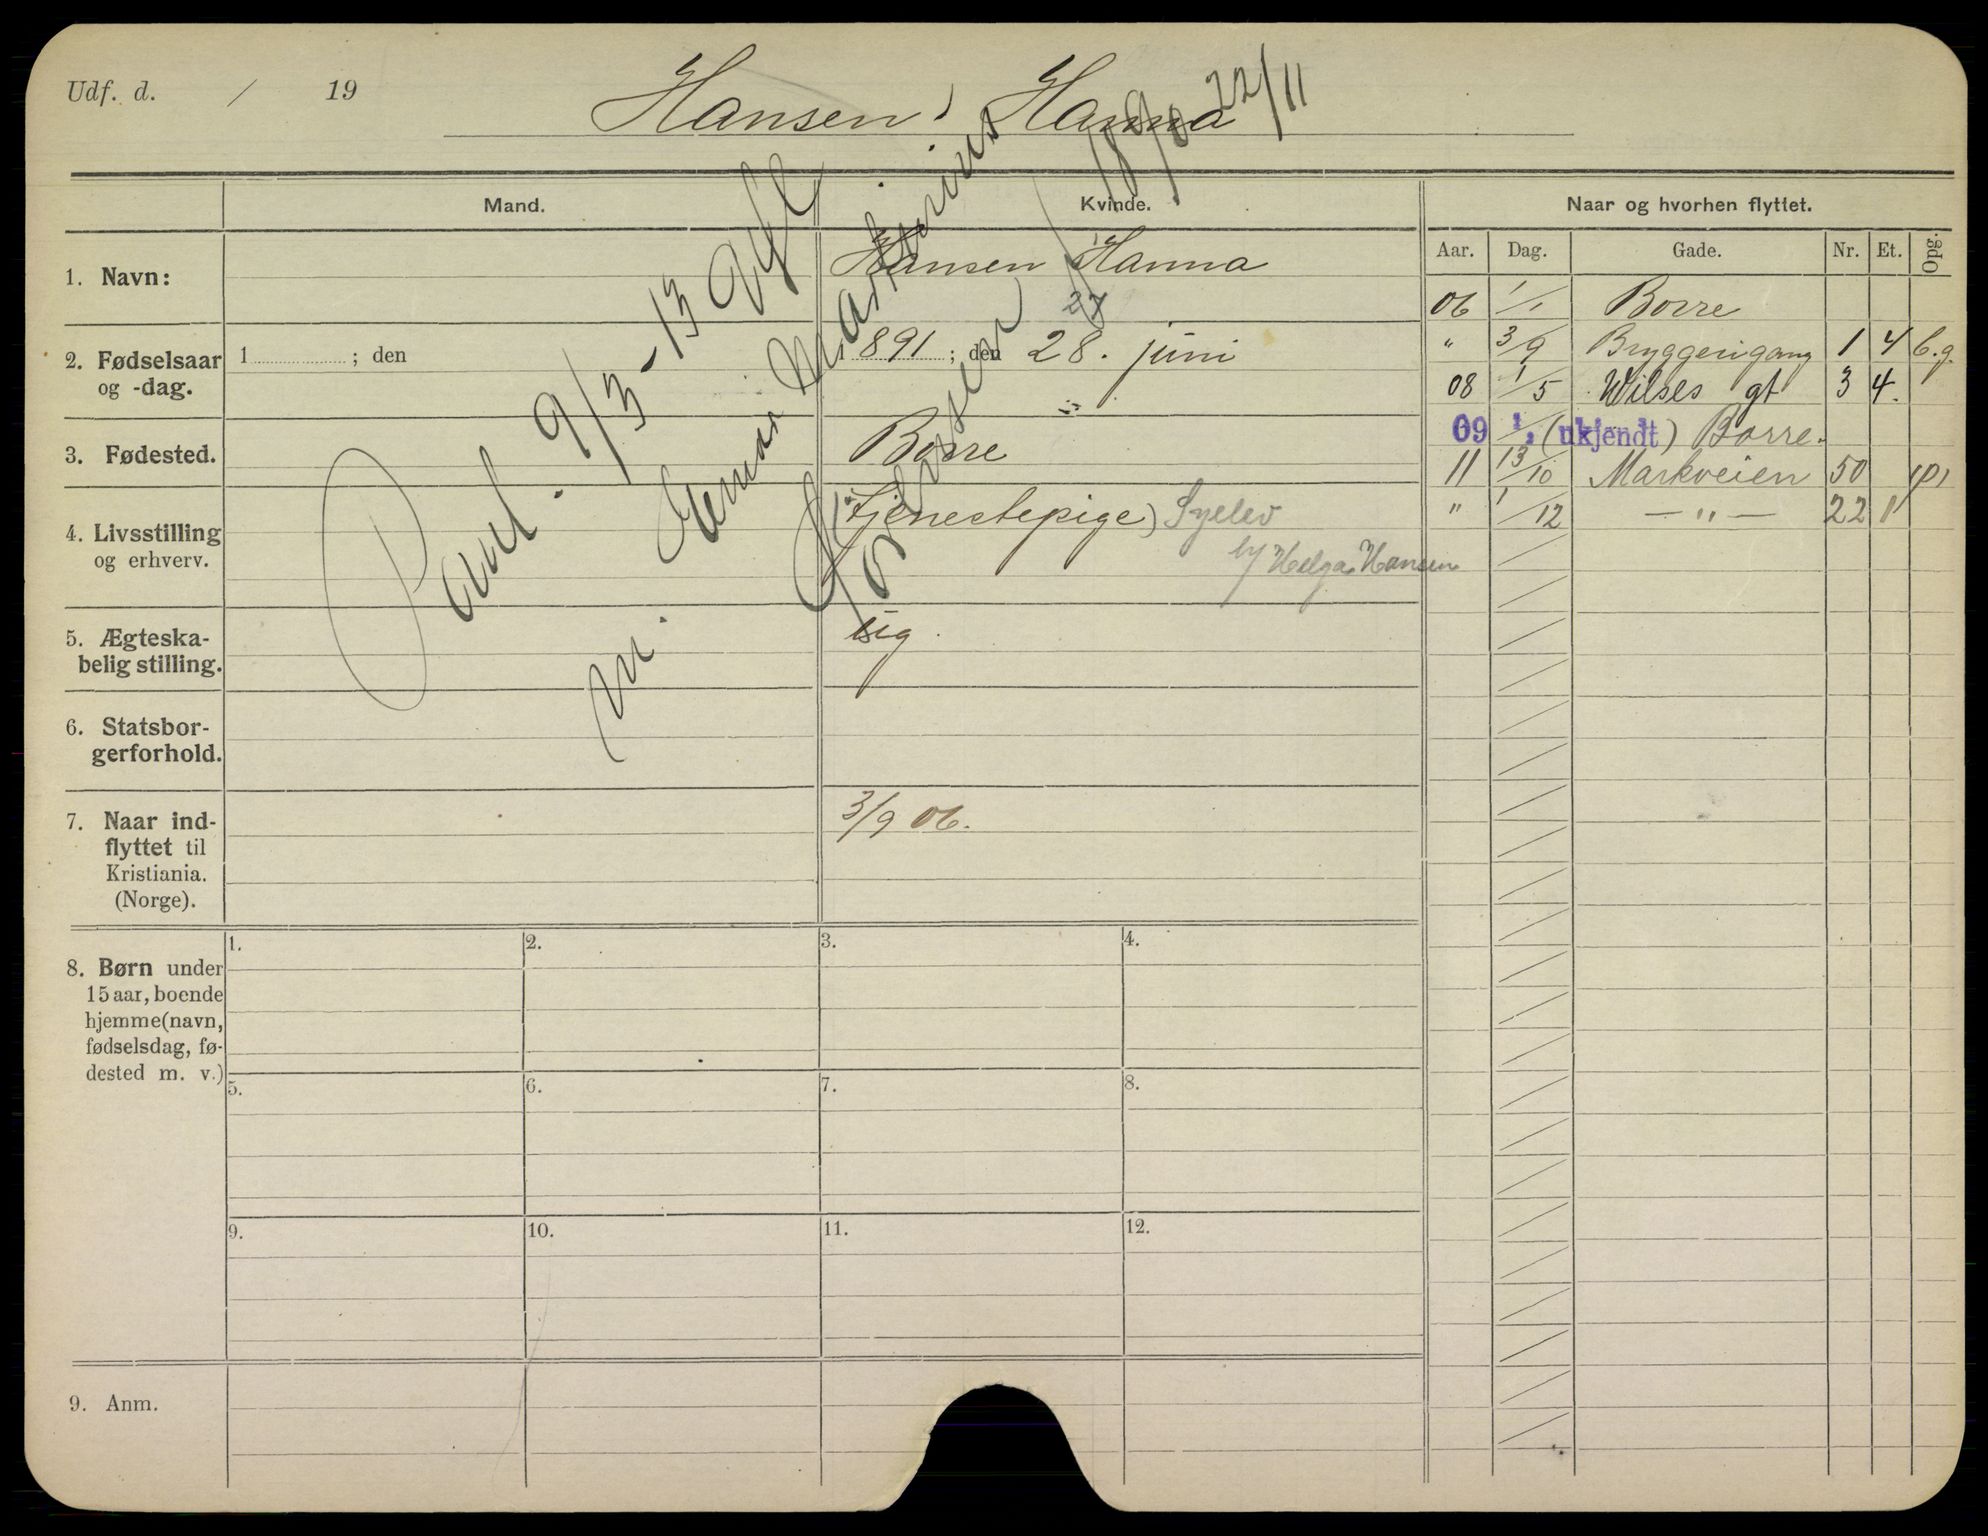 Udf. d. / 19
Hansen, Hanna
Mand.
Kvinde.
Naar og hvorhen flyttet.
Aar. Dag. Gade. Nr. Et. Opg.
1. Navn:
Hansen, Hanna
2. Fødselsaar
og -dag.
1 ; den
27
1891; den 28. juni
3. Fødested.
Borre
4. Livsstilling
og erhverv.
(Tjenestepige) Syelev
by Helga Hansen
5. Ægteska-
belig stilling.
ug.
6. Statsbor-
gerforhold.
7. Naar ind-
flyttet til
Kristiania.
(Norge).
3/9 06.
8. Børn under
15 aar, boende
hjemme (navn,
fødselsdag, fø-
dested m. v.)
1. 2. 3. 4.
5. 6. 7. 8.
9. 10. 11. 12.
9. Anm.
06 1/1 Borre
" 3/9 Bryggerigang 1 4 b.g.
08 1/5 Wilses gt 3 4.
09 1/1 (ukjendt) Borre.
11 13/10 Markveien 50 p1
" 1/12 — " — 22 1
Paul. 9/3-13 Gift
m. Einar Martinius
22/11